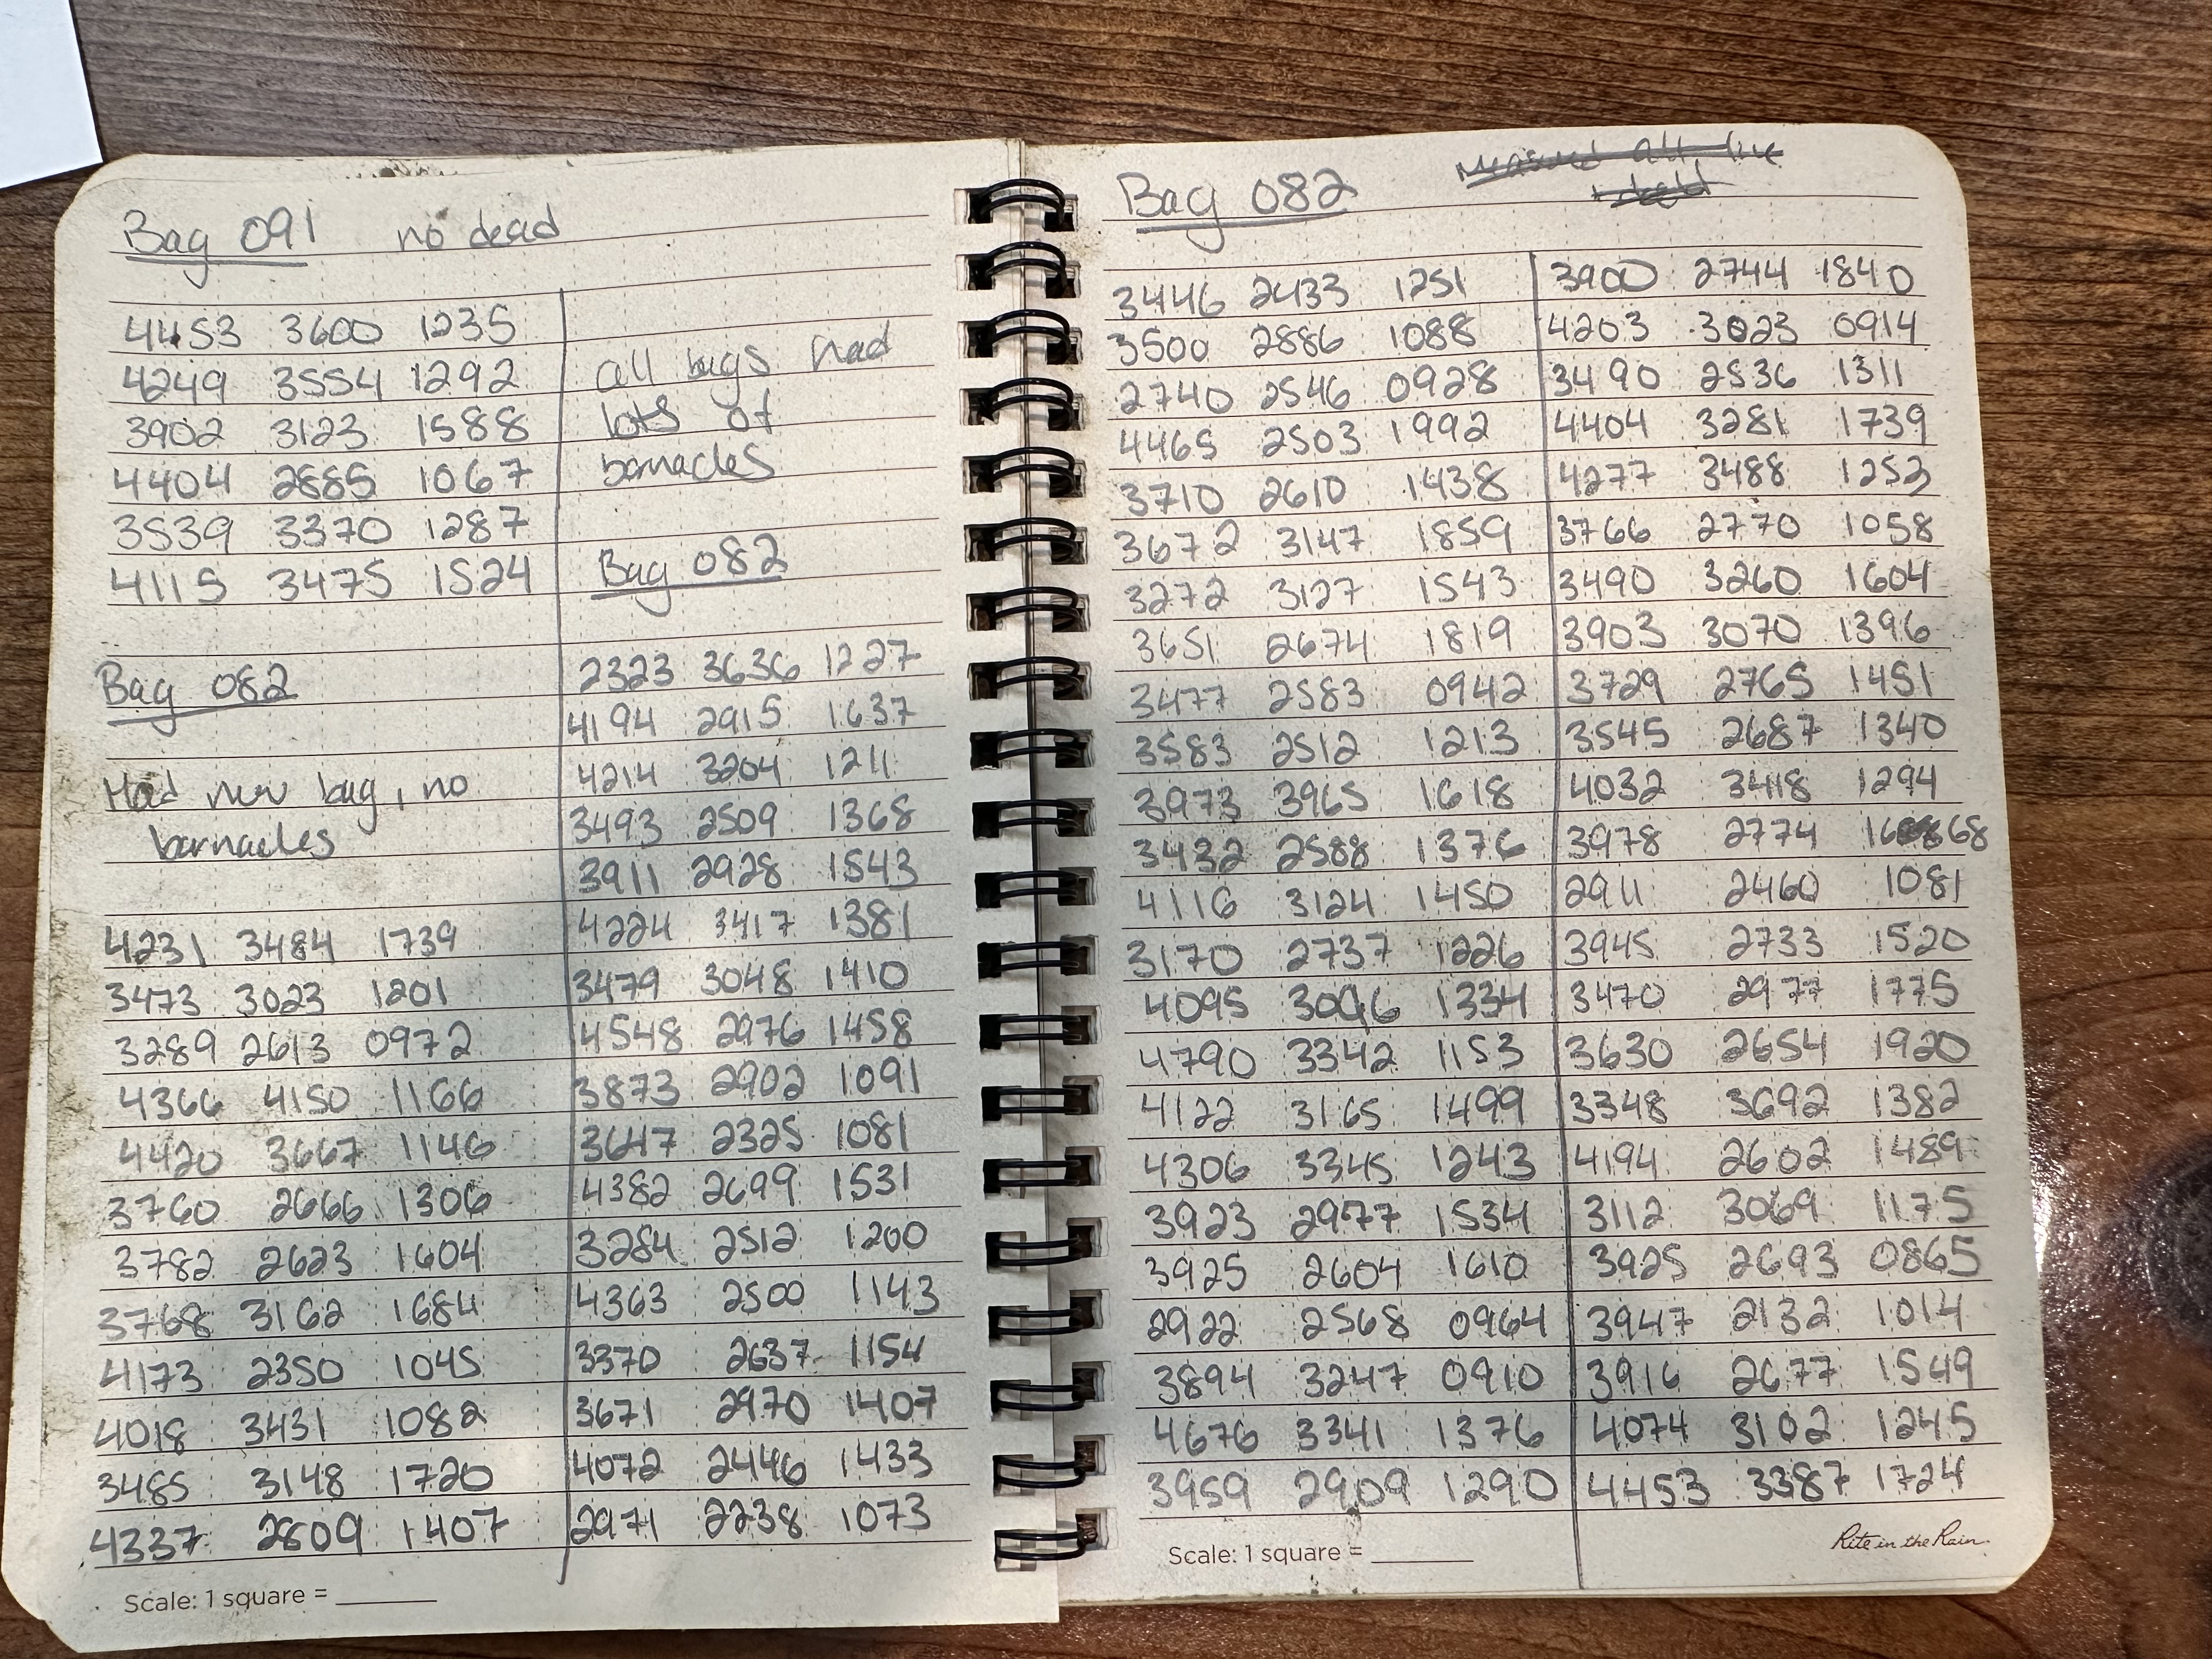 Bag 091 no dead
4453 3600 1235
4249 3554 1292
3902 3123 1588
4404 2885 1067
3539 3370 1287
4115 3475 1524
Bag 082
Had new bag, no
barnacles
4231 3484 1739
3473 3023 1201
3289 2613 0972
4366 4150 1166
4420 3667 1146
3760 2666 1306
3782 2623 1604
3768 3162 1684
4173 2350 1045
4018 3431 1082
3485 3148 1720
4337 2809 1407
Scale: 1 square =
all bags had
lots of
barnacles
Bag 082
2323 3636 1227
4194 2915 1637
4214 3204 1211
3493 2509 1368
3911 2928 1543
4224 3417 1381
3479 3048 1410
4548 2976 1458
3873 2902 1091
3647 2325 1081
4382 2699 1531
3284 2512 1200
4363 2500 1143
3370 2637 1154
3671 2970 1407
4072 2446 1433
2971 2238 1073
Bag 082
3446 2433 1251
3500 2886 1088
2740 2546 0928
4465 2503 1992
3710 2610 1438
3672 3147 1859
3272 3127 1543
3651 2674 1819
3477 2583 0942
3583 2512 1213
3973 3965 1618
3432 2588 1376
4116 3124 1450
3170 2737 1226
4095 3006 1334
4790 3342 1153
4122 3165 1499
4306 3345 1243
3923 2977 1534
3925 2604 1610
2922 2568 0964
3894 3247 0910
4676 3341 1376
3959 2909 1290
Scale: 1 square =
3900 2744 1840
4203 3023 0914
3490 2536 1311
4404 3281 1739
4277 3488 1253
3766 2770 1058
3490 3260 1604
3903 3070 1396
3729 2765 1451
3545 2687 1340
4032 3418 1294
3978 2774 16868
2911 2460 1081
3945 2733 1520
3470 2977 1775
3630 2654 1920
3348 3692 1382
4194 2602 1489
3112 3069 1175
3925 2693 0865
3947 2132 1014
3916 2677 1549
4074 3102 1245
4453 3387 1724
Rite in the Rain